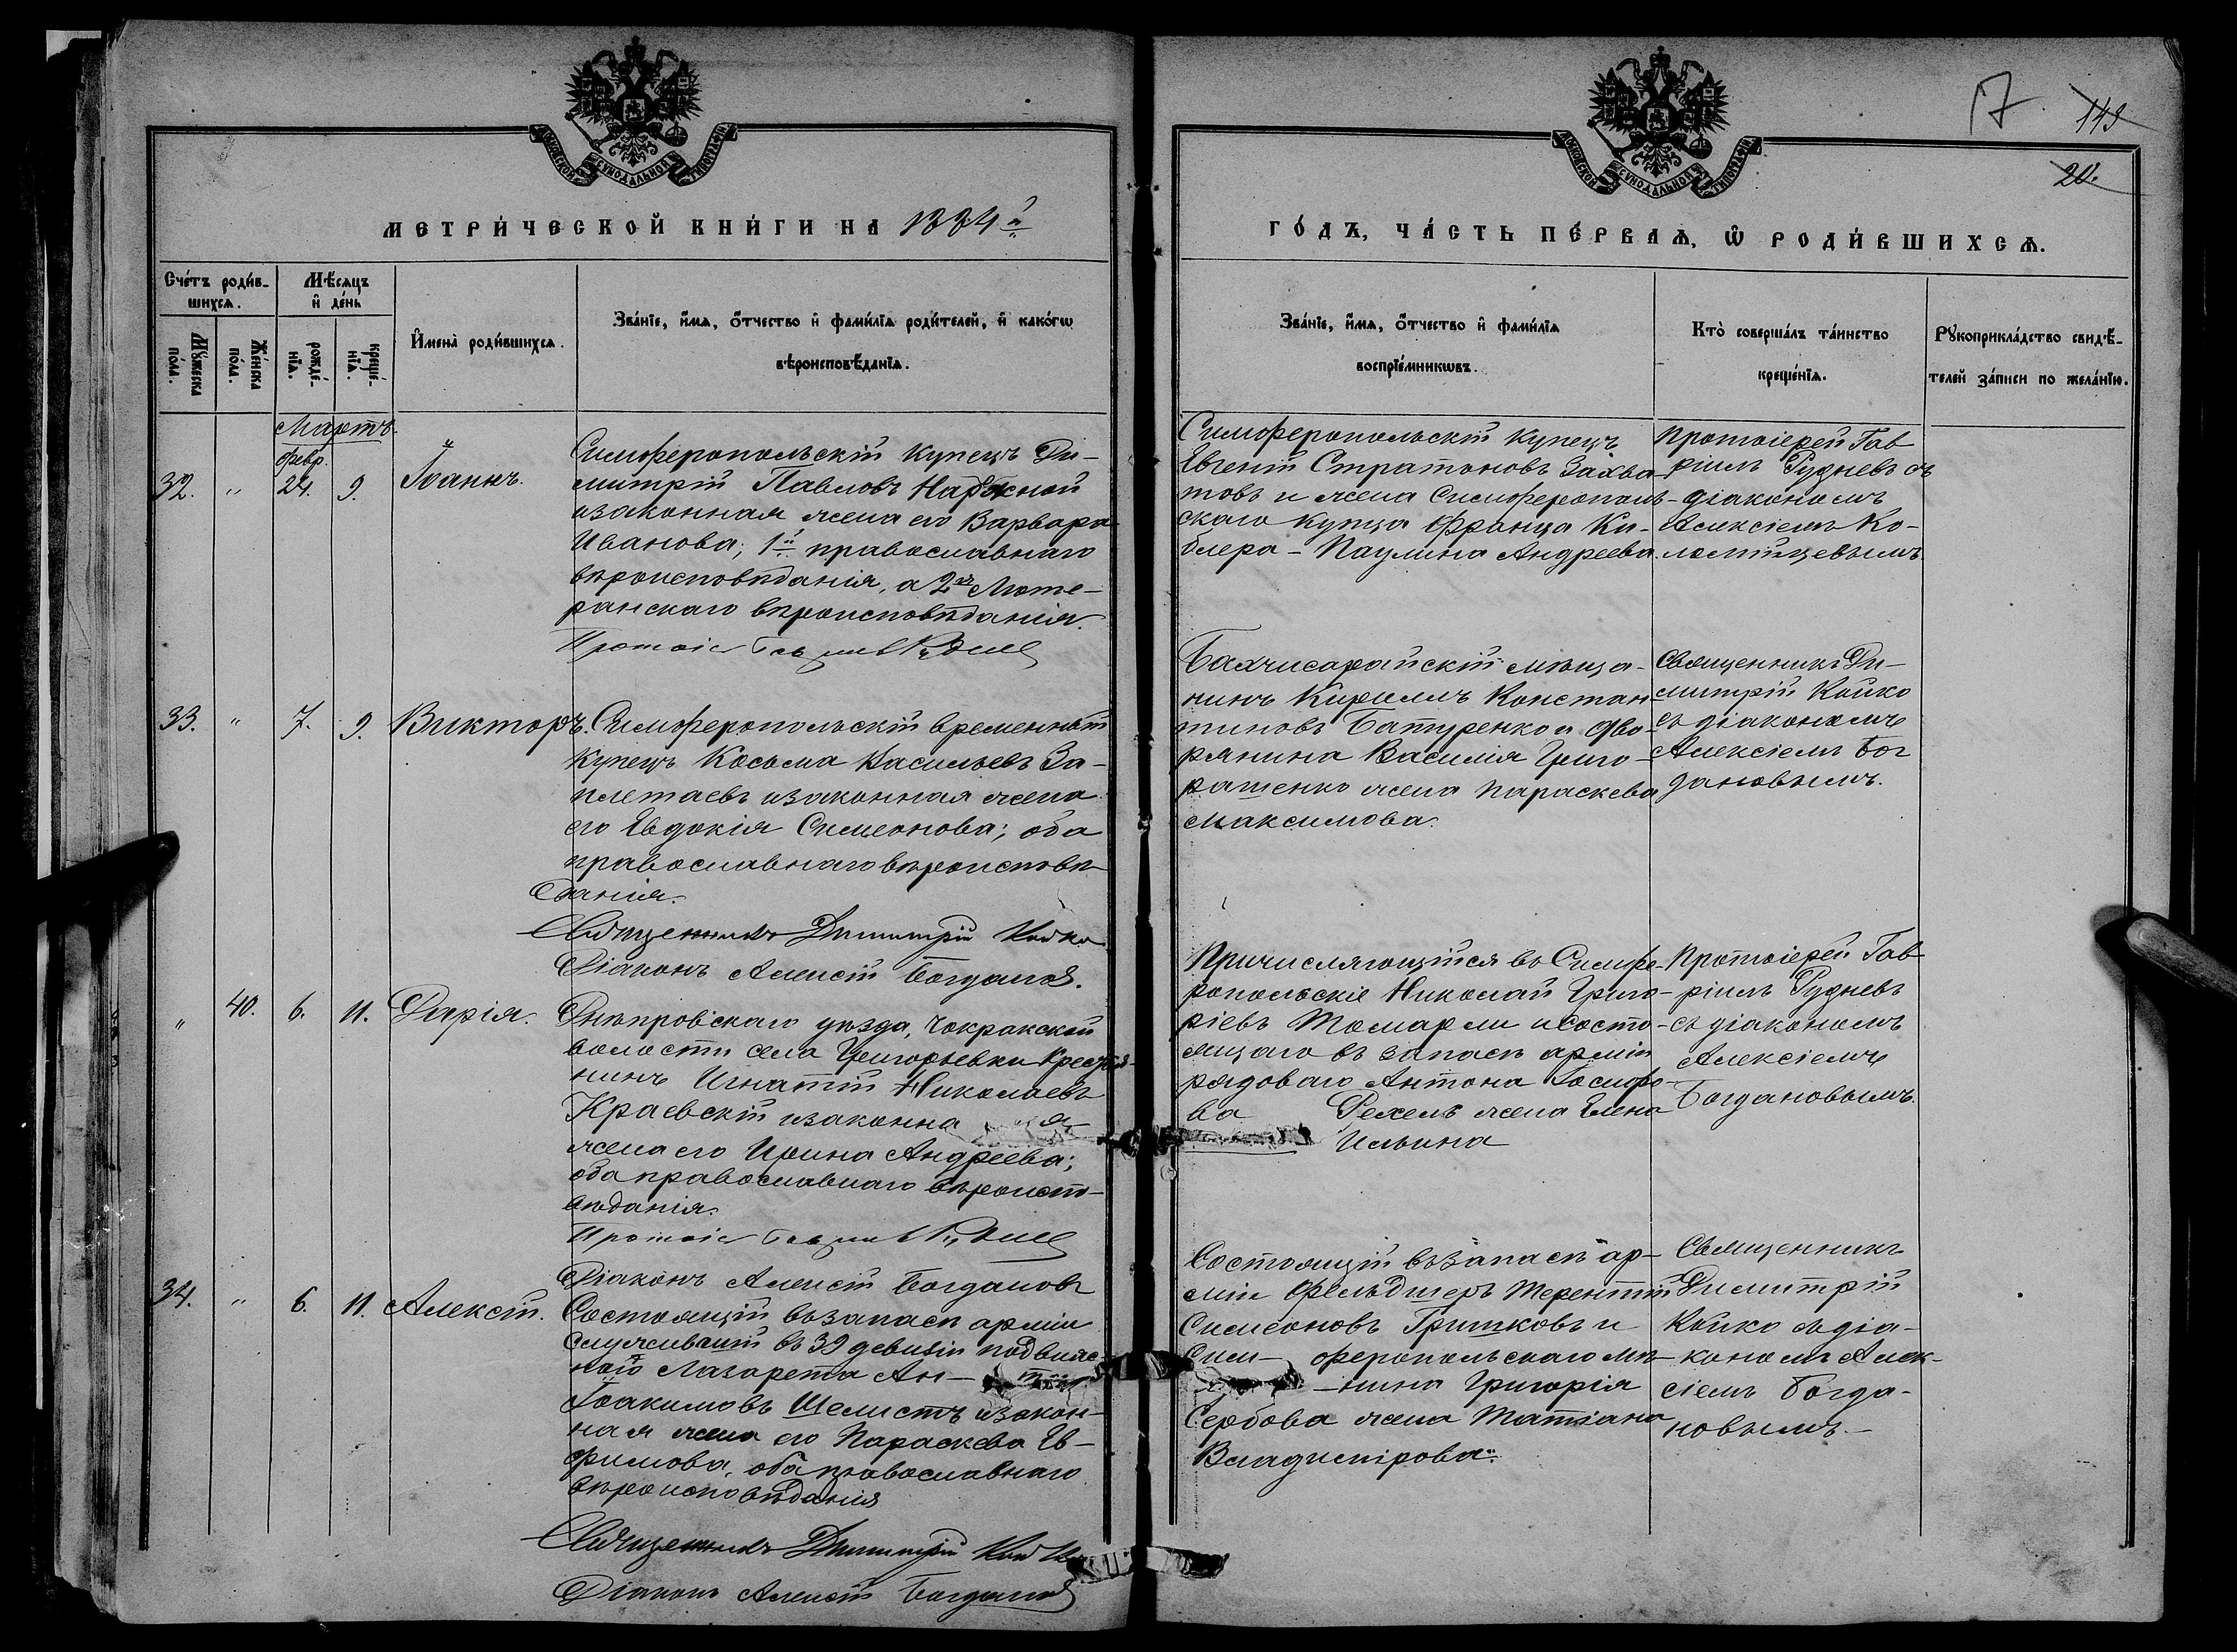 17.
149
20.
МОСКОВСКОЙ СѴНОДАЛЬНОЙ ТИПОГРАФІИ
МОСКОВСКОЙ СѴНОДАЛЬНОЙ ТИПОГРАФІИ
МЕТРИ́ЧЕСКОЙ КНИ́ГИ НА 1884 й
ГО́ДЪ, ЧА́СТЬ ПЕ́РВАѦ, Ѡ҆ РОДИ́ВШИХСѦ.
Сче́тъ роди́в-
шихсѧ.
Мѣ́сѧцъ
и҆ де́нь
Мꙋ́жеска
по́ла.
Же́нска
по́ла.
рожде́-
нїѧ.
креще́-
нїѧ.
И҆мена̀ роди́вшихсѧ.
Зва́нїе, и҆́мѧ, ѻ҆́тчество и҆ фами́лїѧ роди́телей, и҆ како́гѡ
вѣроисповѣ́данїѧ.
Зва́нїе, и҆́мѧ, ѻ҆́тчество и҆ фами́лїѧ
воспрїе́мникѡвъ.
Кто̀ соверша́лъ та́инство
креще́нїѧ.
Рꙋкоприкла́дство свидѣ́-
телей за́писи по жела́нїю.
Мартъ.
февр.
32. " 24. 9. Іоаннъ.
Симферопольскій купецъ Ди-
митрій Павловъ Нарожной
изаконная жена его Варвара
Иванова; 1й православнаго
вѣроисповѣданія, а 2ая Люте-
ранскаго вѣроисповѣданія.
Симферопольскій купецъ
Евгеній Стратоновъ Захва-
товъ и жена Симферополь-
скаго купца Франца Ки-
блера - Паулина Андреева.
Протоіерей Гав
ріилъ Рудневъ съ
діакономъ
Алексіемъ Ко-
33. " 7. 9. Викторъ.
Симферопольскій временный
купецъ Косьма Васильевъ За-
плетаевъ изаконная жена
его Евдокія Симеонова; оба
православнаго вѣроисповѣ-
данія.
Священникъ Димитрій Койко
Діаконъ Алексій Богдановъ.
Бахчисарайскій мѣща-
нинъ Кириллъ Констан-
тиновъ Батуренко и дво-
рянина Василія Григо-
ращенко жена Параскева
Максимова.
Священникъ Ди-
митрій Койко
съ діакономъ
Алексіемъ Бог
дановымъ.
" 40. 6. 11. Дарія.
Днѣпровскаго уѣзда, Чокракской
волости села Григорьевки крестья-
нинъ Игнатій Николаевъ
Краевскій изаконна я
жена его Ирина Андреева;
оба православнаго вѣроиспо-
вѣданія.
Діаконъ Алексій Богдановъ
Причисляющійся въ Симфе-
ропольскіе Николай Григо-
ріевъ Томарли и состо-
ящаго въ запасѣ арміи
рядоваго Антона Іосифо-
ва жена Елена
Ильина
Протоіерей Гав-
ріилъ Рудневъ
съ діакономъ
Алексіемъ
Богдановымъ.
34. " 6. 11. Алексій.
Состоящій въ запасѣ арміи
служившій въ 39 девизіи подвиж-
наго Лазарета Ан-
Іоакимовъ Шелистъ изакон-
ная жена его Параскева Ев-
фимова, оба православнаго
вѣроисповѣданія
Священникъ Димитрій Койко
Діаконъ Алексій Богдановъ
Состоящій въ запасѣ ар-
міи фельдшеръ Терентій
Симеоновъ Гришковъ и
Сим- феропольскаго мѣ-
-нина Григорія
Сербова жена Татіана
Владимірова.
Священникъ
Димитрій
Койко съ діа-
кономъ Алек-
сіемъ Богда-
новымъ.